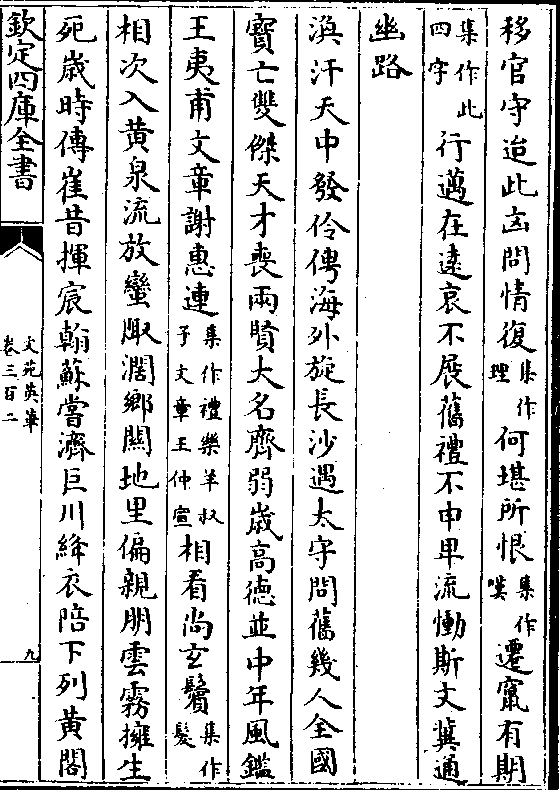 移官守迨此凶問情復集作理何堪所恨集作嘆遷竄有期
集作此四字行邁在遠哀不展舊禮不申卑流慟斯文冀通
幽路
渙汗天中發伶俜海外旋長沙遇太守問舊幾人全國
寳亡雙傑天才喪兩賢大名齊弱嵗高德並中年風鑑
王夷甫文章謝惠連集作禮樂羊叔子文章王仲宣相看尚玄鬢集作髮
相次入黄泉流放蠻陬濶鄉關地里偏親朋雲霧擁生
死嵗時傳崔昔揮宸翰蘇嘗濟巨川絳衣陪下列黄閣
欽定四庫全書
文苑英華
卷三百二
九